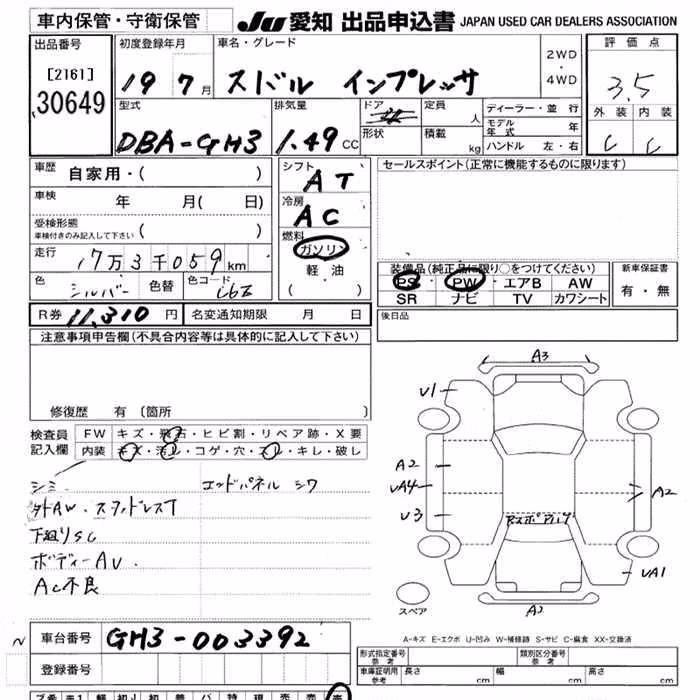 車内保管・守衛保管
JU 愛知 出品申込書 JAPAN USED CAR DEALERS ASSOCIATION
出品番号
[2161]
30649
初度登録年月
19 7月
車名・グレード
スバル インプレッサ
2WD
・
4WD
評価点
3.5
外装 内装
C C
型式
DBA-GH3
排気量
1.49 CC
ドア
形状
定員
人
積載
kg
ディーラー・並行
モデル年式 年
ハンドル 左・右
車歴 自家用・( )
車検 年 月( 日)
受検形態
車検付きのみ記入して下さい ( )
走行 17万3千059km
色 シルバー 色替 色コード C6Z
シフト
AT
冷房
AC
燃料
ガソリン
・
軽油
( )
セールスポイント(正常に機能するものに限ります)
装備品(純正品に限り○をつけてください)
PS・PW・エアB AW
SR ナビ TV カワシート
新車保証書
有・無
R券 11,310 円 名変通知期限 月 日
後日品
注意事項申告欄(不具合内容等は具体的に記入して下さい)
修復歴 有 〔箇所 〕
検査員記入欄
FW キズ・飛石・ヒビ割・リペア跡・X要
内装 キズ・汚レ・コゲ・穴・スレ・キレ・破レ
シミ
エンドパネル シワ
外AW・スタッドレスT
下廻りSC
ボディーAU
AC不良
A3
U1
A2
UA4
U3
A2
UA1
A2
スペア
A-キズ E-エクボ U-凹み W-補修跡 S-サビ C-腐食 XX-交換済
N
車台番号 GH3-003392
登録番号
形式指定番号 参考
類別区分番号 参考
車庫証明用 参考 長さ cm 幅 cm 高さ cm